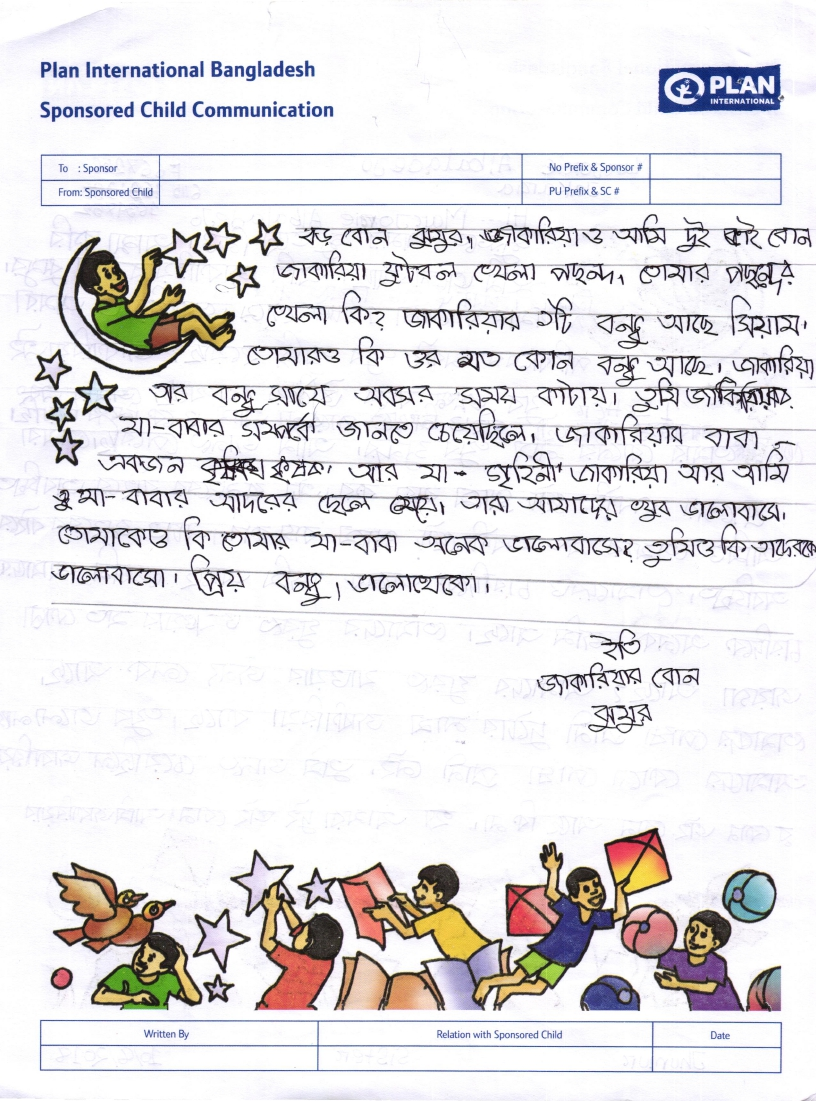 Plan International Bangladesh
PLAN
INTERNATIONAL
Sponsored Child Communication
To : Sponsor
No Prefix & Sponsor #
From: Sponsored Child
PU Prefix & SC #
বড় বোন ঝুমুর, জাকারিয়া ও আমি দুই ভাই বোন
জাকারিয়া ফুটবল খেলা পছন্দ, তোমার পছন্দের
খেলা কি? জাকারিয়ার ১টি বন্ধু আছে সিয়াম,
তোমারও কি ওর মত কোন বন্ধু আছে। জাকারিয়া
তার বন্ধু সাথে অবসর সময় কাটায়। তুমি জাকারিয়ার
মা-বাবার সম্পর্কে জানতে চেয়েছিলে। জাকারিয়ার বাবা
একজন কৃষক। আর মা - গৃহিনী জাকারিয়া আর আমি
মা-বাবার আদরের ছেলে মেয়ে। তারা আমাদের খুব ভালোবাসে,
তোমাকেও কি তোমার মা-বাবা অনেক ভালোবাসে? তুমিও কি তাদেরকে
ভালোবাসো। প্রিয় বন্ধু, ভালোথেকো।
ইতি
জাকারিয়ার বোন
ঝুমুর
Written By
Relation with Sponsored Child
Date